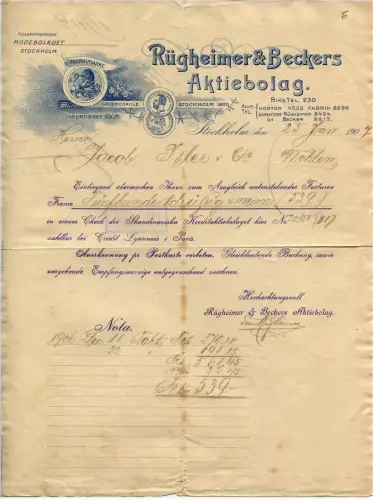 TELEGRAMADRESS
MODEBOLAGET
STOCKHOLM
FABRIKSMARKE
GULDMEDALJE
STOCKHOLM 1897
GEGRÜNDET 1868.
Rügheimer & Beckers
Aktiebolag.
RIKSTEL. 230
ALLM. TEL.
KONTOR 4552 FABRIK 8296
DIREKTOR RÜGHEIMER 8494
BECKER 8913.
Stockholm den 25 Jan 1907
Herren
Jacob Isler & Cie Wohlen
Einliegend übermachen Ihnen zum Ausgleich untenstehender Facturen
Francs Fünfhundertdreissig & neun (539)
in einem Check der Skandinaviska Kreditaktiebolaget hier No
zahlbar bei Crédit Lyonnais, Paris.
Anerkennung pr Postkarte verbeten. Gleichlautende Buchung, sowie
umgehende Empfangsanzeige entgegensehend zeichnen
Hochachtungsvoll
Rügheimer & Beckers Aktiebolag.
Nota.
1906 Dez 11 Fakt. Frs
22 " "
Frs 539.-